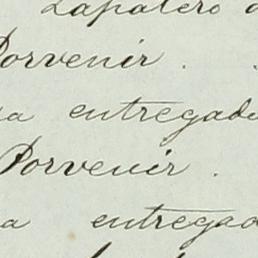 Zapatero
Porvenir .
entregada
Porvenir .
a entregad